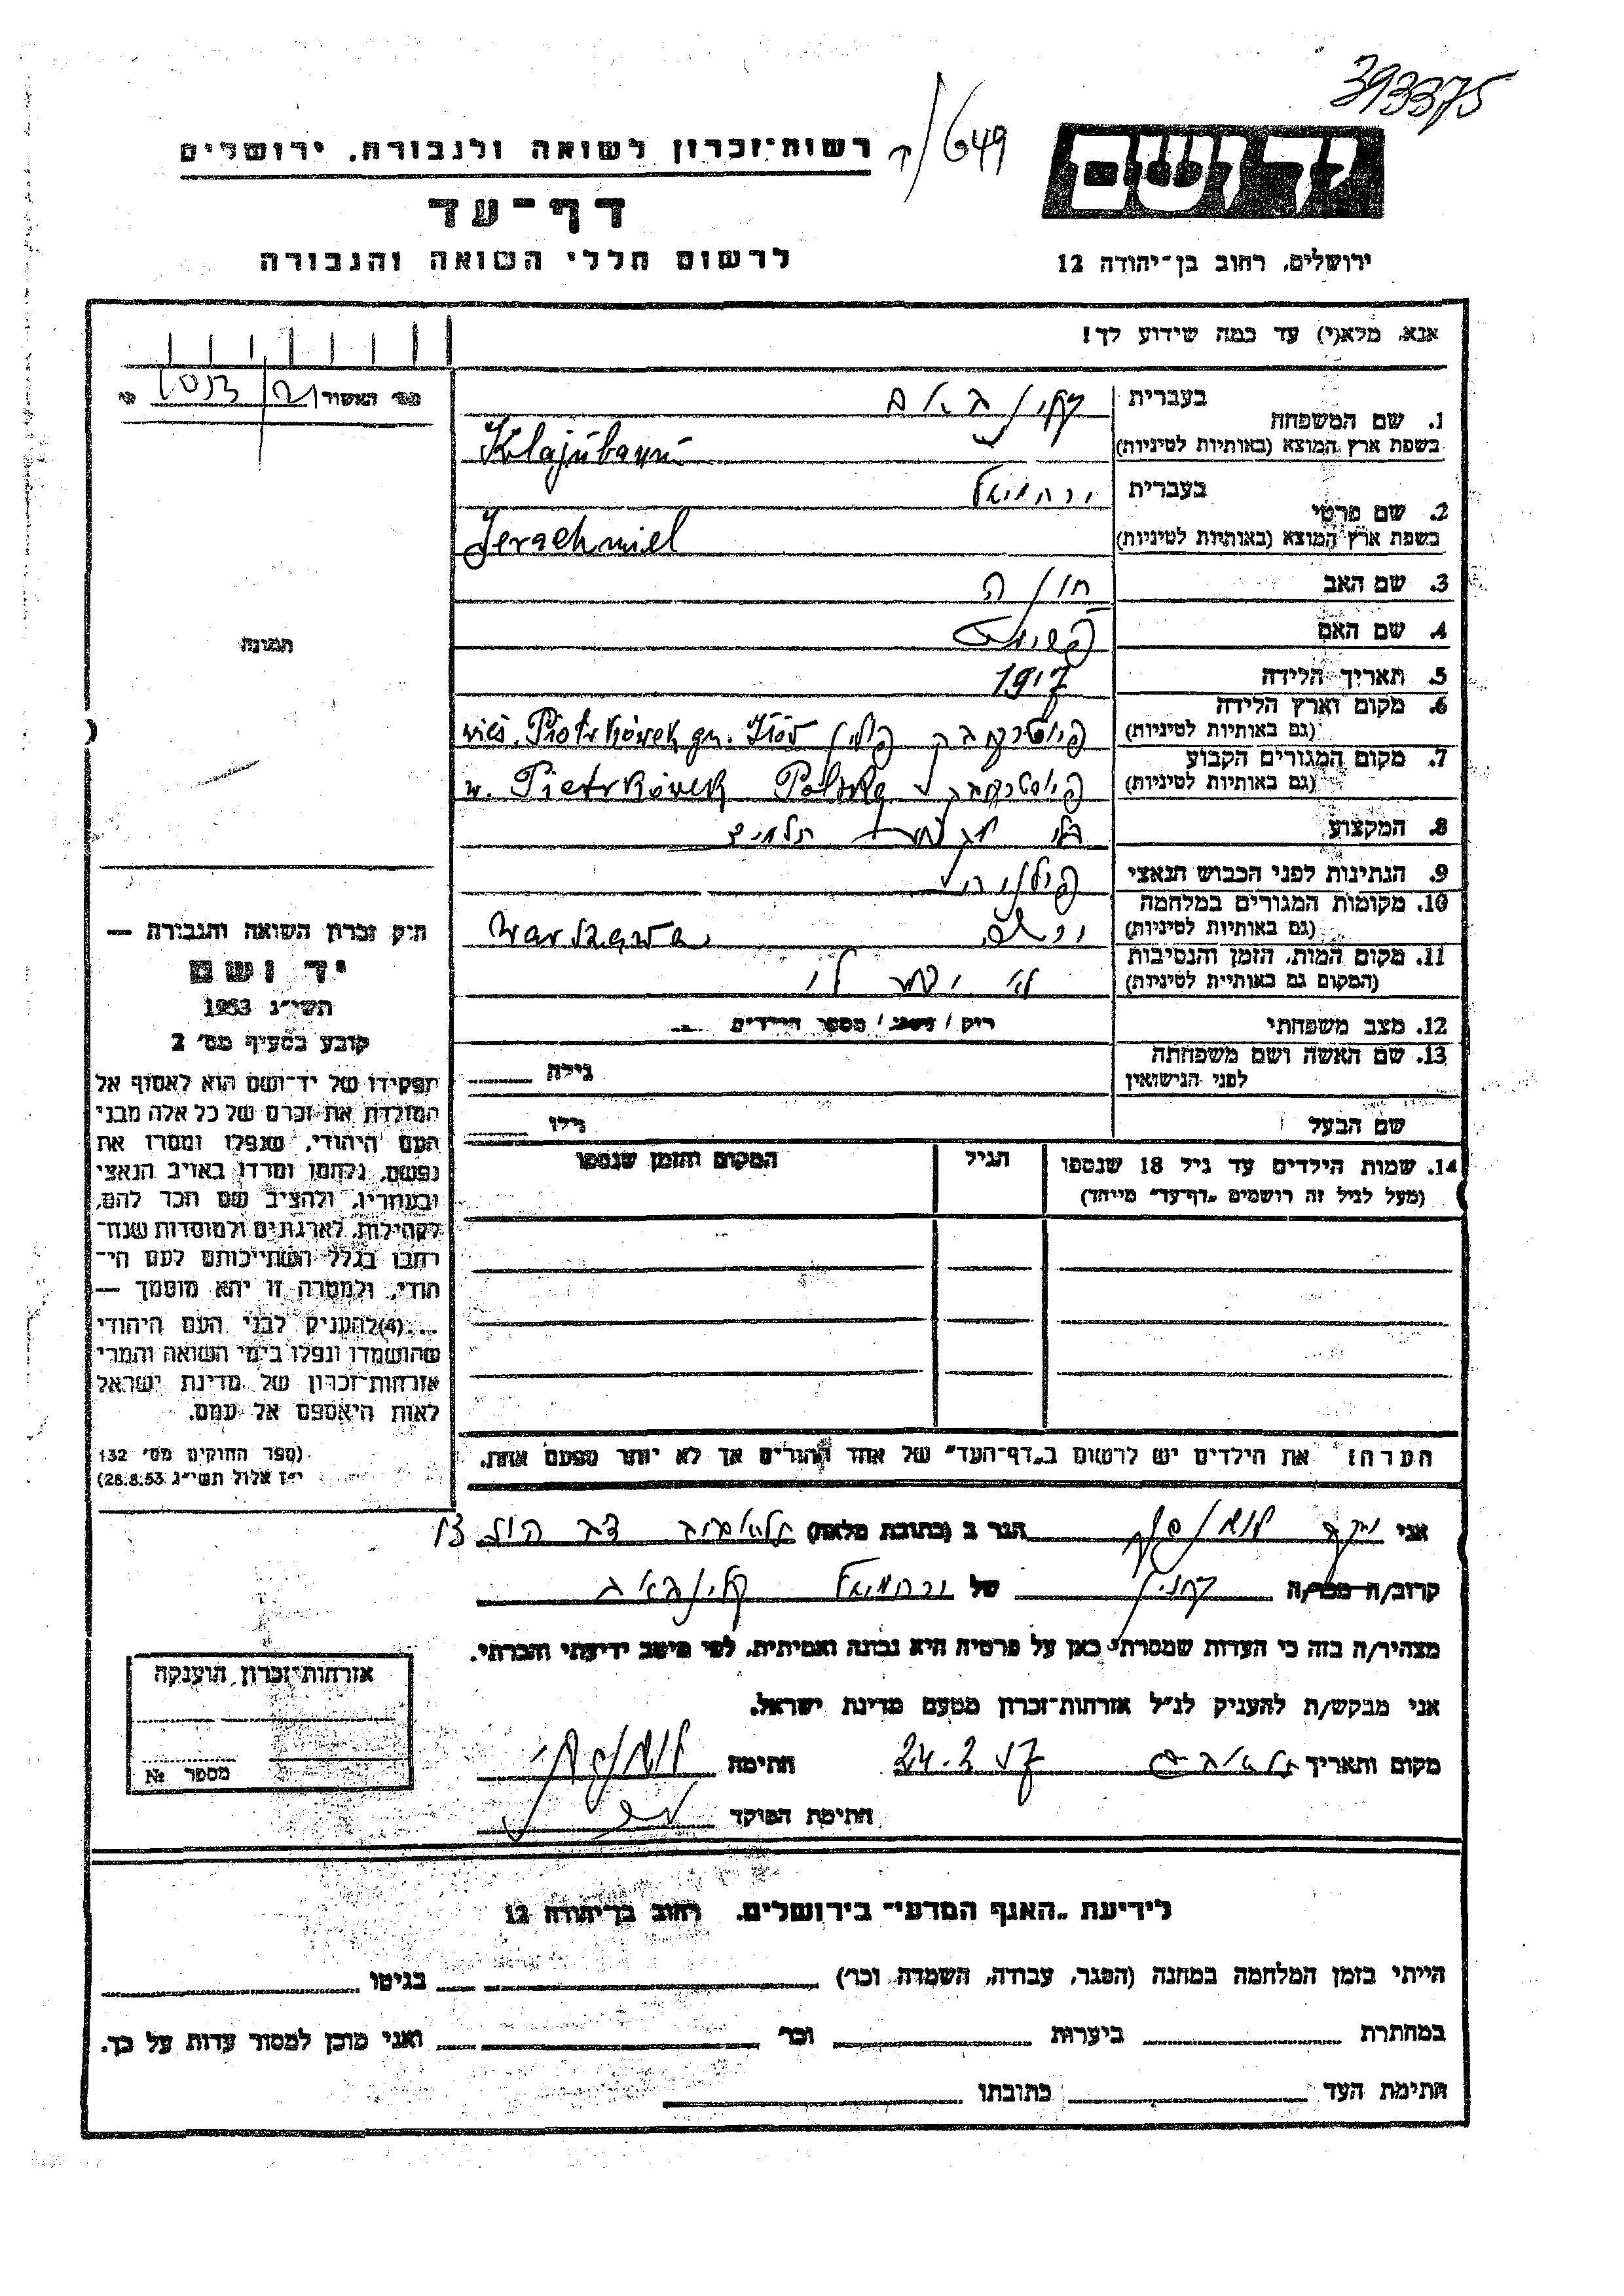 393375
רשות־זכרון לשואה ולגבורה, ירושלים
ק/649
יד ושם
דף־עד
לרשום חללי השואה והגבורה
ירושלים, רחוב בן־יהודה 12
אנא, מלא(י) עד כמה שידוע לך!
מס׳ האשור
1. שם המשפחה
בעברית
בשפת ארץ המוצא (באותיות לטיניות) Klajnbaum
2. שם פרטי
בעברית ירחמיאל
בשפת ארץ המוצא (באותיות לטיניות) Jerachmiel
3. שם האב
4. שם האם
5. תאריך הלידה 1917
6. מקום וארץ הלידה
(גם באותיות לטיניות) wieś. Piotrkówek gm.
7. מקום המגורים הקבוע
(גם באותיות לטיניות) w. Pietrkówek Polska
8. המקצוע בלי מקצוע תלמיד
9. הנתינות לפני הכבוש הנאצי פולנית
10. מקומות המגורים במלחמה
(גם באותיות לטיניות) Warszawa
11. מקום המות, הזמן והנסיבות
(המקום גם באותיות לטיניות) לא ידוע לי
12. מצב משפחתי רוק / נשוי / מספר הילדים
13. שם האשה ושם משפחתה
לפני הנישואין גילה
שם הבעל גילו
14. שמות הילדים עד גיל 18 שנספו
(מעל לגיל זה רושמים „דף־עד״ מיוחד)
הגיל
המקום והזמן שנספו
הערה: את הילדים יש לרשום ב„דף־העד״ של אחד ההורים אך לא יותר מפעם אחת.
תמונה
חוק זכרון השואה והגבורה —
יד ושם
תשי״ג 1953
קובע בסעיף מס׳ 2
תפקידו של יד־ושם הוא לאסוף אל
המולדת את זכרם של כל אלה מבני
העם היהודי, שנפלו ומסרו את
נפשם, נלחמו ומרדו באויב הנאצי
ובעוזריו, ולהציב שם וזכר להם,
לקהילות, לארגונים ולמוסדות שנח־
רבו בגלל השתייכותם לעם הי־
הודי, ולמטרה זו יהא מוסמך —
...(4) להעניק לבני העם היהודי
שהושמדו ונפלו בימי השואה והמרי
אזרחות־זכרון של מדינת ישראל
לאות היאספם אל עמם.
(ספר החוקים מס׳ 132
י״ז אלול תשי״ג 28.8.53)
אני יעקב הגר ב (כתובת מלאה) תל אביב
קרוב/ה מכר/ה של ירחמיאל קליינבאום
מצהיר/ה בזה כי העדות שמסרתי כאן על פרטיה היא נכונה ואמיתית, לפי מיטב ידיעתי והכרתי.
אני מבקש/ת להעניק לנ״ל אזרחות־זכרון מטעם מדינת ישראל.
מקום ותאריך תל אביב 24.2.57 חתימה
חתימת הפוקד
אזרחות־זכרון הוענקה
מספר №
לידיעת „האגף המדעי״ בירושלים, רחוב בן־יהודה 12
הייתי בזמן המלחמה במחנה (הסגר, עבודה, השמדה וכו׳) בגיטו
במחתרת ביערות וכו׳ ואני מוכן למסור עדות על כך.
חתימת העד כתובתו